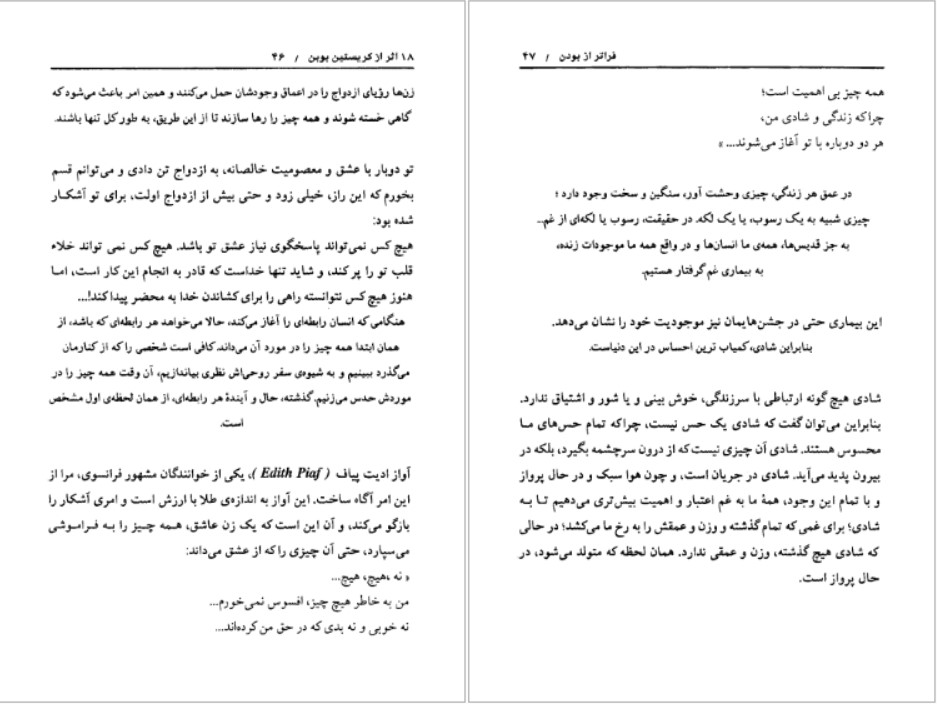 ۱۸ اثر از کریستین بوبن / ۴۶
زن‌ها رؤیای ازدواج را در اعماق وجودشان حمل می‌کنند و همین امر باعث می‌شود که
گاهی خسته شوند و همه چیز را رها سازند تا از این طریق، به طور کل تنها باشند.
تو دوبار با عشق و معصومیت خالصانه، به ازدواج تن دادی و می‌توانم قسم
بخورم که این راز، خیلی زود و حتی بیش از ازدواج اولت، برای تو آشکار
شده بود:
هیچ کس نمی‌تواند پاسخگوی نیاز عشق تو باشد. هیچ کس نمی تواند خلاء
قلب تو را پر کند، و شاید تنها خداست که قادر به انجام این کار است، اما
هنوز هیچ کس نتوانسته راهی را برای کشاندن خدا به محضر پیدا کند!...
هنگامی که انسان رابطه‌ای را آغاز می‌کند، حالا می‌خواهد هر رابطه‌ای که باشد، از
همان ابتدا همه چیز را در مورد آن می‌داند. کافی است شخصی را که از کنارمان
می‌گذرد ببینیم و به شیوه‌ی سفر روحی‌اش نظری بیاندازیم، آن وقت همه چیز را در
موردش حدس می‌زنیم. گذشته، حال و آیندهٔ هر رابطه‌ای، از همان لحظه‌ی اول مشخص
است.
آواز ادیت پیاف ( Edith Piaf )، یکی از خوانندگان مشهور فرانسوی، مرا از
این امر آگاه ساخت. این آواز به اندازه‌ی طلا با ارزش است و امری آشکار را
بازگو می‌کند، و آن این است که یک زن عاشق، همه چیز را به فراموشی
می‌سپارد، حتی آن چیزی را که از عشق می‌داند:
« نه ،هیچ، هیچ...
من به خاطر هیچ چیز، افسوس نمی‌خورم...
نه خوبی و نه بدی که در حق من کرده‌اند...
فراتر از بودن / ۴۷
همه چیز بی اهمیت است؛
چراکه زندگی و شادی من،
هر دو دوباره با تو آغاز می‌شوند... »
در عمق هر زندگی، چیزی وحشت آور، سنگین و سخت وجود دارد ؛
چیزی شبیه به یک رسوب، یا یک لکه. در حقیقت، رسوب یا لکه‌ای از غم...
به جز قدیس‌ها، همه‌ی ما انسان‌ها و در واقع همه ما موجودات زنده،
به بیماری غم گرفتار هستیم.
این بیماری حتی در جشن‌هایمان نیز موجودیت خود را نشان می‌دهد.
بنابراین شادی، کمیاب ترین احساس در این دنیاست.
شادی هیچ گونه ارتباطی با سرزندگی، خوش بینی و یا شور و اشتیاق ندارد.
بنابراین می‌توان گفت که شادی یک حس نیست، چراکه تمام حس‌های ما
محسوس هستند. شادی آن چیزی نیست که از درون سرچشمه بگیرد، بلکه در
بیرون پدید می‌آید. شادی در جریان است، و چون هوا سبک و در حال پرواز
و با تمام این وجود، همهٔ ما به غم اعتبار و اهمیت بیش‌تری می‌دهیم تا به
شادی؛ برای غمی که تمام گذشته و وزن و عمقش را به رخ ما می‌کشد؛ در حالی
که شادی هیچ گذشته، وزن و عمقی ندارد. همان لحظه که متولد می‌شود، در
حال پرواز است.